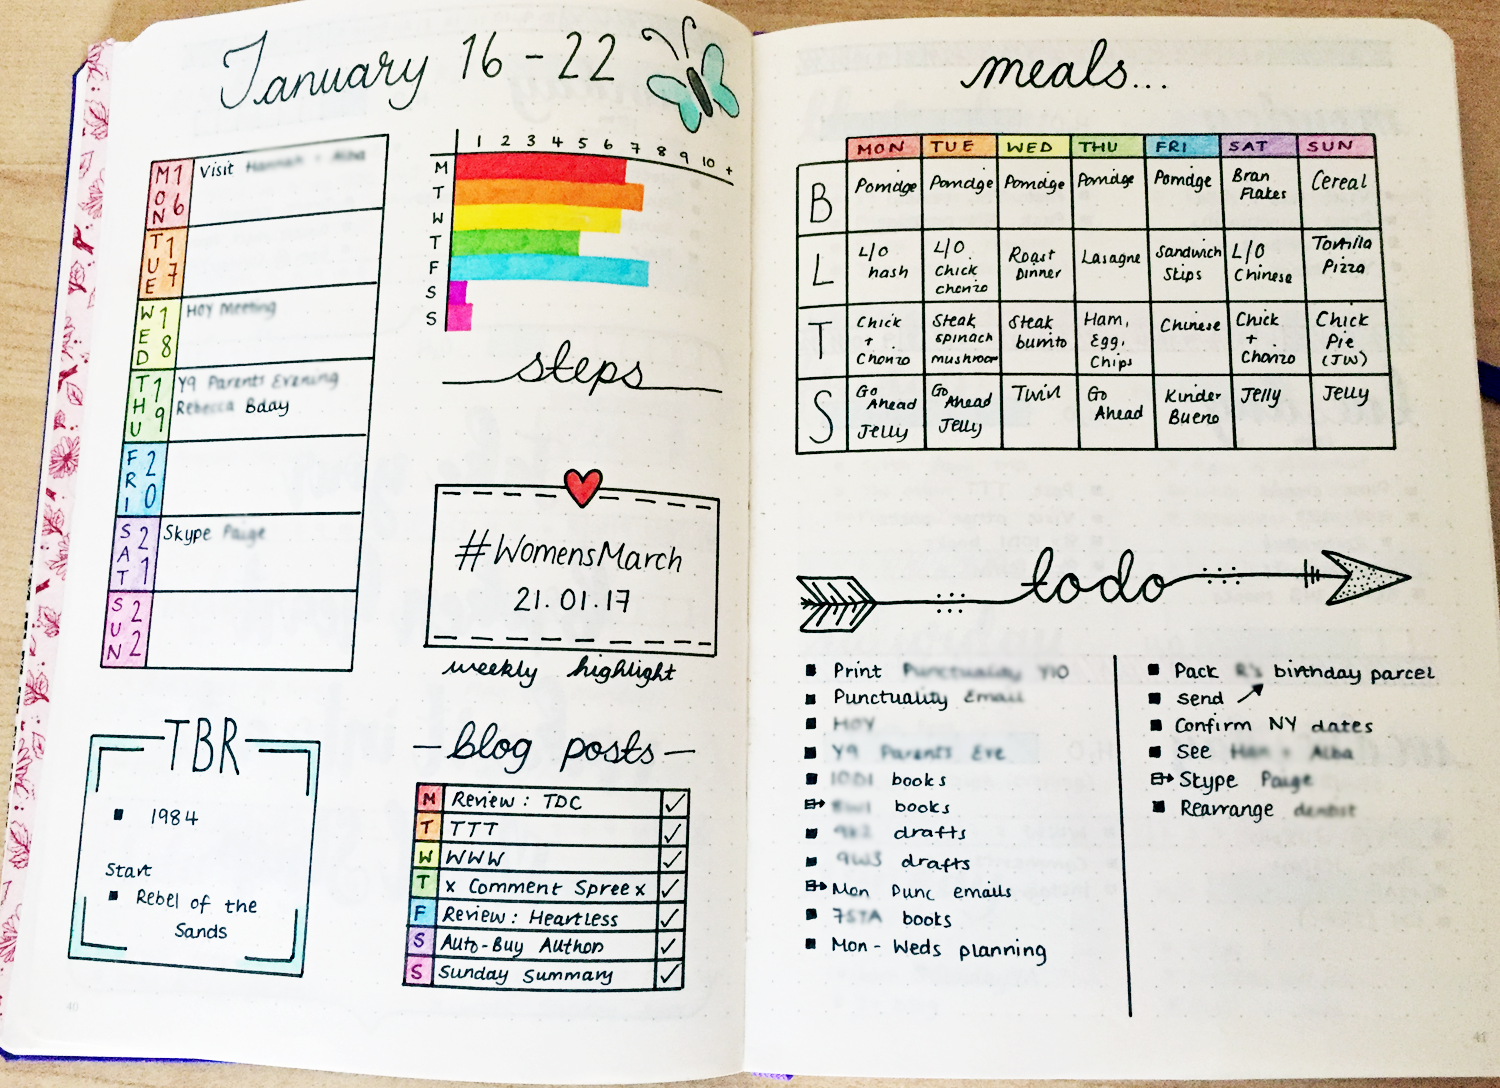 January 16 - 22
MON 16 Visit
TUE 17
WED 18 HOY Meeting
THU 19 Y9 Parents Evening
Rebecca Bday
FRI 20
SAT 21 Skype Paige
SUN 22
1 2 3 4 5 6 7 8 9 10 +
M
T
W
T
F
S
S
steps
#WomensMarch
21.01.17
weekly highlight
TBR
1984
Start
Rebel of the
Sands
blog posts
M Review: TDC ✓
T TTT ✓
W WWW ✓
T x Comment Spree x ✓
F Review: Heartless ✓
S Auto-Buy Author ✓
S Sunday Summary ✓
40
meals...
MON TUE WED THU FRI SAT SUN
B Porridge Porridge Porridge Porridge Porridge Bran Flakes Cereal
L L/O hash L/O Chick chorizo Roast Dinner Lasagne Sandwich Skips L/O Chinese Tortilla Pizza
T Chick + Chorizo Steak spinach mushroom Steak burrito Ham, Egg, Chips Chinese Chick + Chorizo Chick Pie (JW)
S Go Ahead Jelly Go Ahead Jelly Twirl Go Ahead Kinder Bueno Jelly Jelly
to do
Print Punctuality Y10
Punctuality Email
HOY
Y9 Parents Eve
books
books
drafts
drafts
Mon Punc emails
books
Mon - Weds planning
Pack R's birthday parcel
send
Confirm NY dates
See Alba
Skype Paige
Rearrange dentist
41